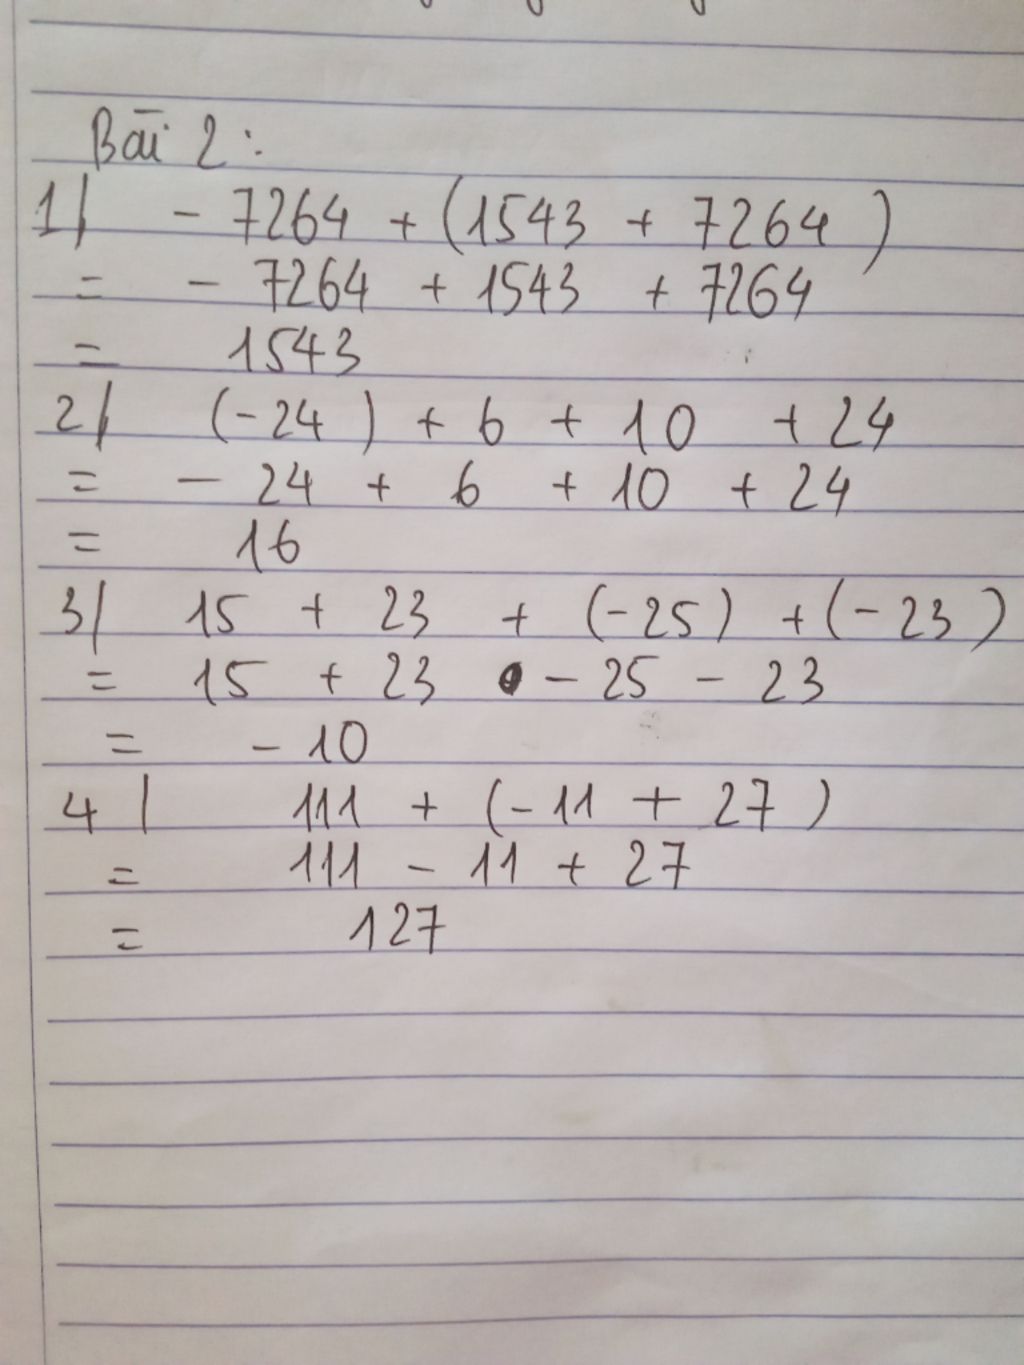 Bài 2:
1/ - 7264 + (1543 + 7264)
= - 7264 + 1543 + 7264
= 1543
2/ (-24) + 6 + 10 + 24
= - 24 + 6 + 10 + 24
= 16
3/ 15 + 23 + (-25) + (-23)
= 15 + 23 - 25 - 23
= - 10
4/ 111 + (-11 + 27)
= 111 - 11 + 27
= 127